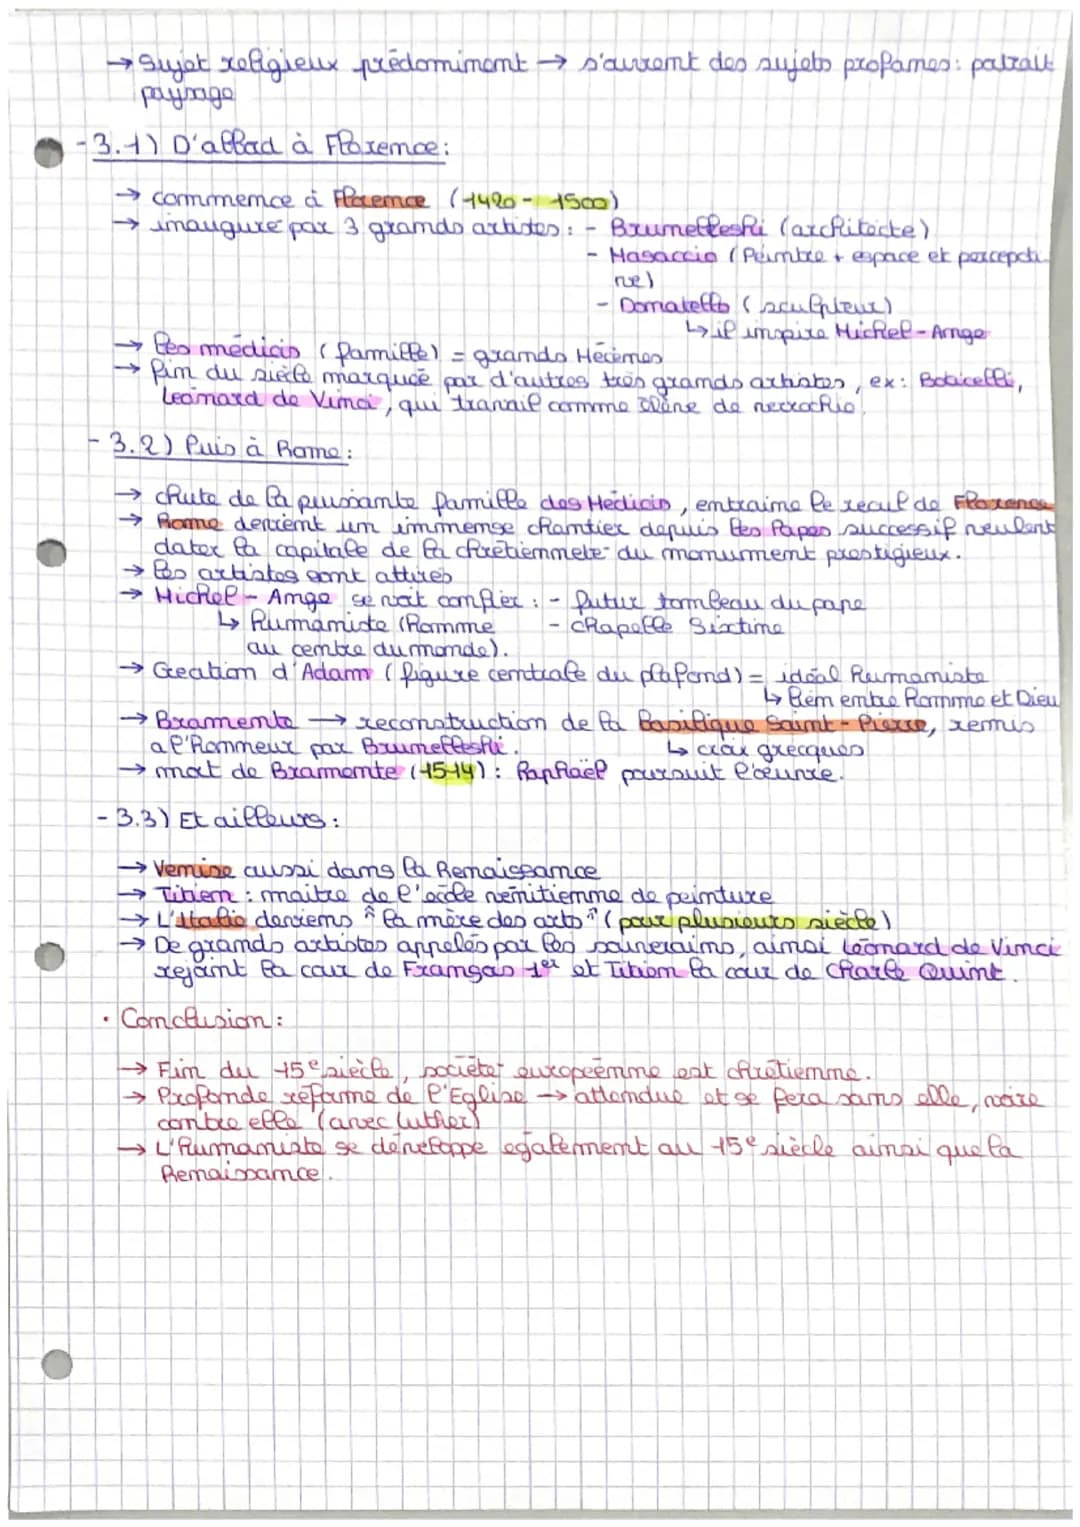 → Sujet religieux prédominent → s'ouvrent des sujets profanes : portrait
paysage
- 3.1) D'abbord à Florence :
→ commence à Florence (1420 - 1500)
→ inauguré par 3 grands artistes : - Bruneffeshi (architecte)
- Masaccio (Peintre + espace et percepcti
ve)
- Donatello (sculpteur)
↳ il inspire Michel-Ange
→ les médicis (famille) = grands Mécènes
→ Fin du siècle marquée par d'autres très grands artistes, ex : Boticelli,
Léonard de Vinci, qui travail comme élève de verrochio.
- 3.2) Puis à Rome :
→ chute de la puissante famille des Médicis, entraine le recul de Florence
→ Rome devient un immense chantier depuis les Papes successif veulent
dater la capitale de la chrétiennete du monument prestigieux.
→ les artistes sont attirés
→ Michel-Ange se voit confier : - futur tombeau du pape
↳ humaniste (homme - chapelle Sixtine
au centre du monde).
→ Création d'Adam (figure centrale du plafond) = idéal humaniste
↳ lien entre homme et Dieu
→ Bramente → reconstruction de la Basilique Saint-Pierre, remis
a l'honneur par Bruneffeshi. ↳ croix grecques
→ mort de Bramente (1514) : Raphaël poursuit l'œuvre.
- 3.3) Et ailleurs :
→ Venise aussi dans la Renaissance
→ Titien : maitre de l'école vénitienne de peinture
→ L'Italie deviens "la mère des arts" (pour plusieurs siècle)
→ De grands artistes appelés par les souverains, ainsi Léonard de Vinci
rejoint la cour de François 1er et Titien la cour de Charle Quint.
• Conclusion :
→ Fin du 15e siècle, sociéte européenne est chrétienne.
→ Profonde réforme de l'Eglise → attendue et se fera sans elle, voire
contre elle (avec Luther)
→ L'humaniste se développe également au 15e siècle ainsi que la
Renaissance.